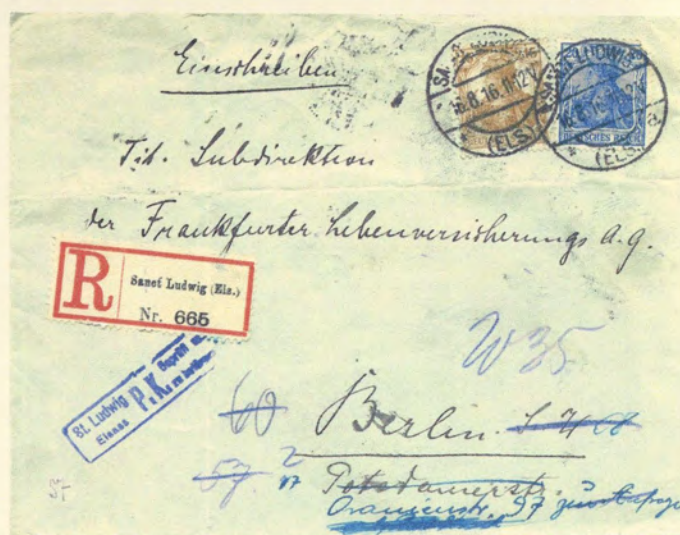 Einschreiben
SANCT LUDWIG
16.8.16.11-12V.
* (ELS)
SANCT LUDWIG
16.8.16.11-12V.
* (ELS) a
DEUTSCHES REICH
Tit. Subdirektion
der Frankfurter Lebenversicherungs A.G.
R
Sanct Ludwig (Els.)
Nr. 665
St. Ludwig
Elsass
P.K.
Geprüft
zu
W 35
60
Berlin. S W 68
57. 2
Potsdamerstr.
Oranienstr. 97